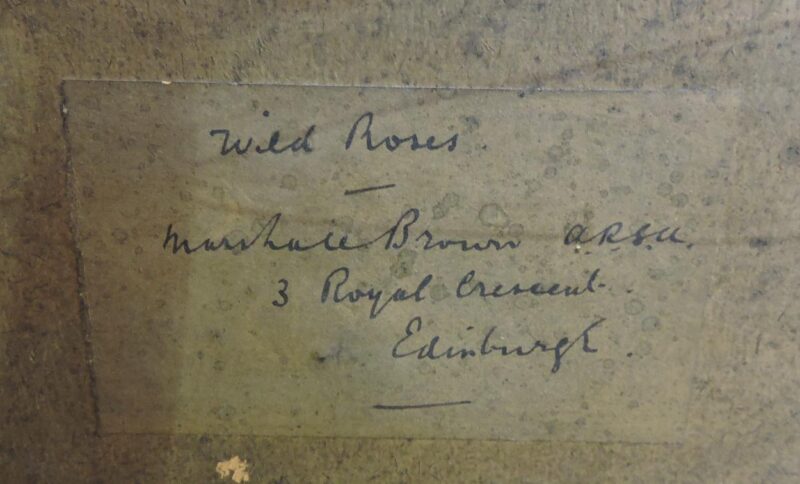 Wild Roses
Marshall Brown A.R.S.A.
3 Royal Crescent.
Edinburgh.